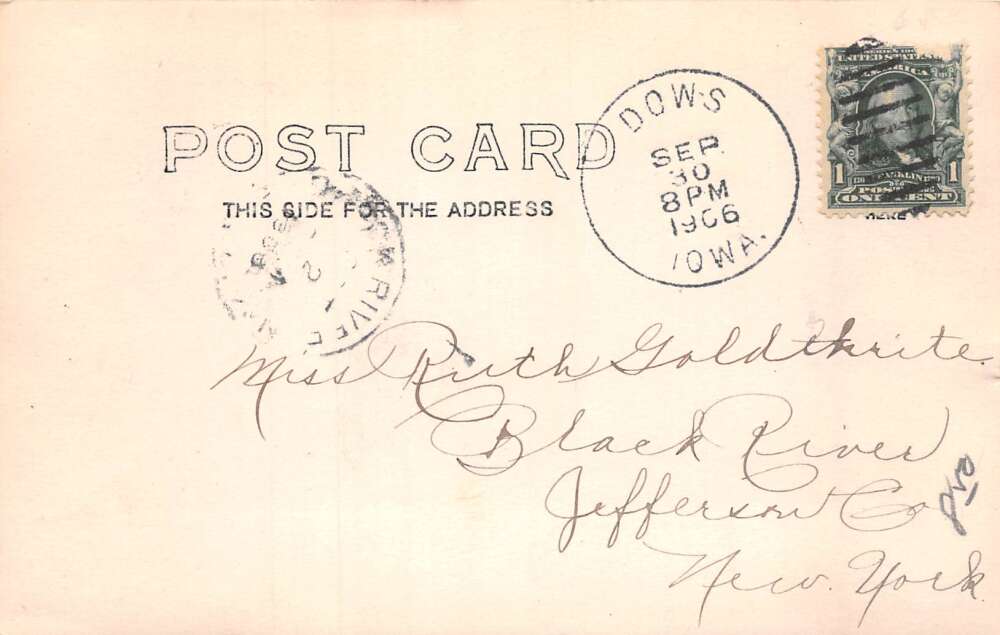 POST CARD
THIS SIDE FOR THE ADDRESS
DOWS
SEP
30
8 PM
1906
IOWA.
SERIES 1902
UNITED STATES OF AMERICA
1 FRANKLIN 1
POSTAGE
ONE CENT
HERE
RIVER
2
Miss Ruth Goldthrite.
Black River
Jefferson Co
New York